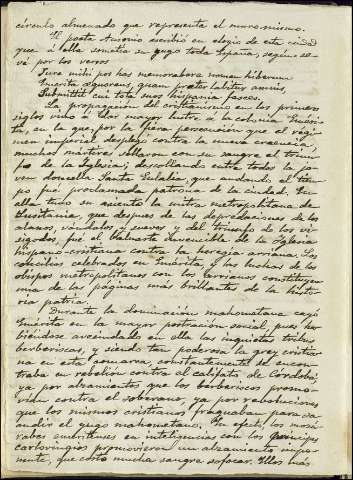 círculo almenado que representa el muro mismo.
El poeta Ausonio escribió en elogio de esta ciudad
que á ella sometía su yugo toda España, según se
vé por los versos
Jure mihi pos has memorabere nomen hiberum
Emerita æquoreus, quam præter labitur amnis,
Submittit cui tota suos hispania fasces.
La propagación del cristianismo en los primeros
siglos vino á dar mayor lustre á la colonia Eméri-
ta, en la que, por la fiera persecución que el régi-
men imperial desplegó contra la nueva creencia,
muchos mártires sellaron con su sangre el triun-
fo de la Iglesia; descollando entre todos la jo-
ven doncella Santa Eulalia, que andando el tiem-
po fué proclamada patrona de la ciudad. En
ella tuvo su asiento la mitra metropolitana de
Lusitania, que después de las depredaciones de los
alanos, vándalos y suevos y del triunfo de los vi-
sigodos, fué el baluarte invencible de la Iglesia
hispano-cristiana contra la heregía arriana. Los
concilios celebrados en Emérita, y las luchas de los
obispos metropolitanos con los arrianos constituyen
una de las páginas más brillantes de la histo-
ria patria.
Durante la dominación mahometana cayó
Emérita en la mayor postración social, pues ha-
biéndose avecindado en ella las inquietas tribus
berberiscas, y siendo tan poderosa la grey cristia-
na en esta comarca, constantemente se encon-
traba en rebelión contra el califato de Córdoba,
ya por alzamientos que los berberiscos promo-
vían contra el soberano, ya por revoluciones
que los mismos cristianos fraguaban para sa-
cudir el yugo mahometano. En efecto, los mozá-
rabes emeritenses en inteligencias con los príncipes
carlovingios promovieron un alzamiento impo-
nente, que costó mucha sangre sofocar. Ellos más